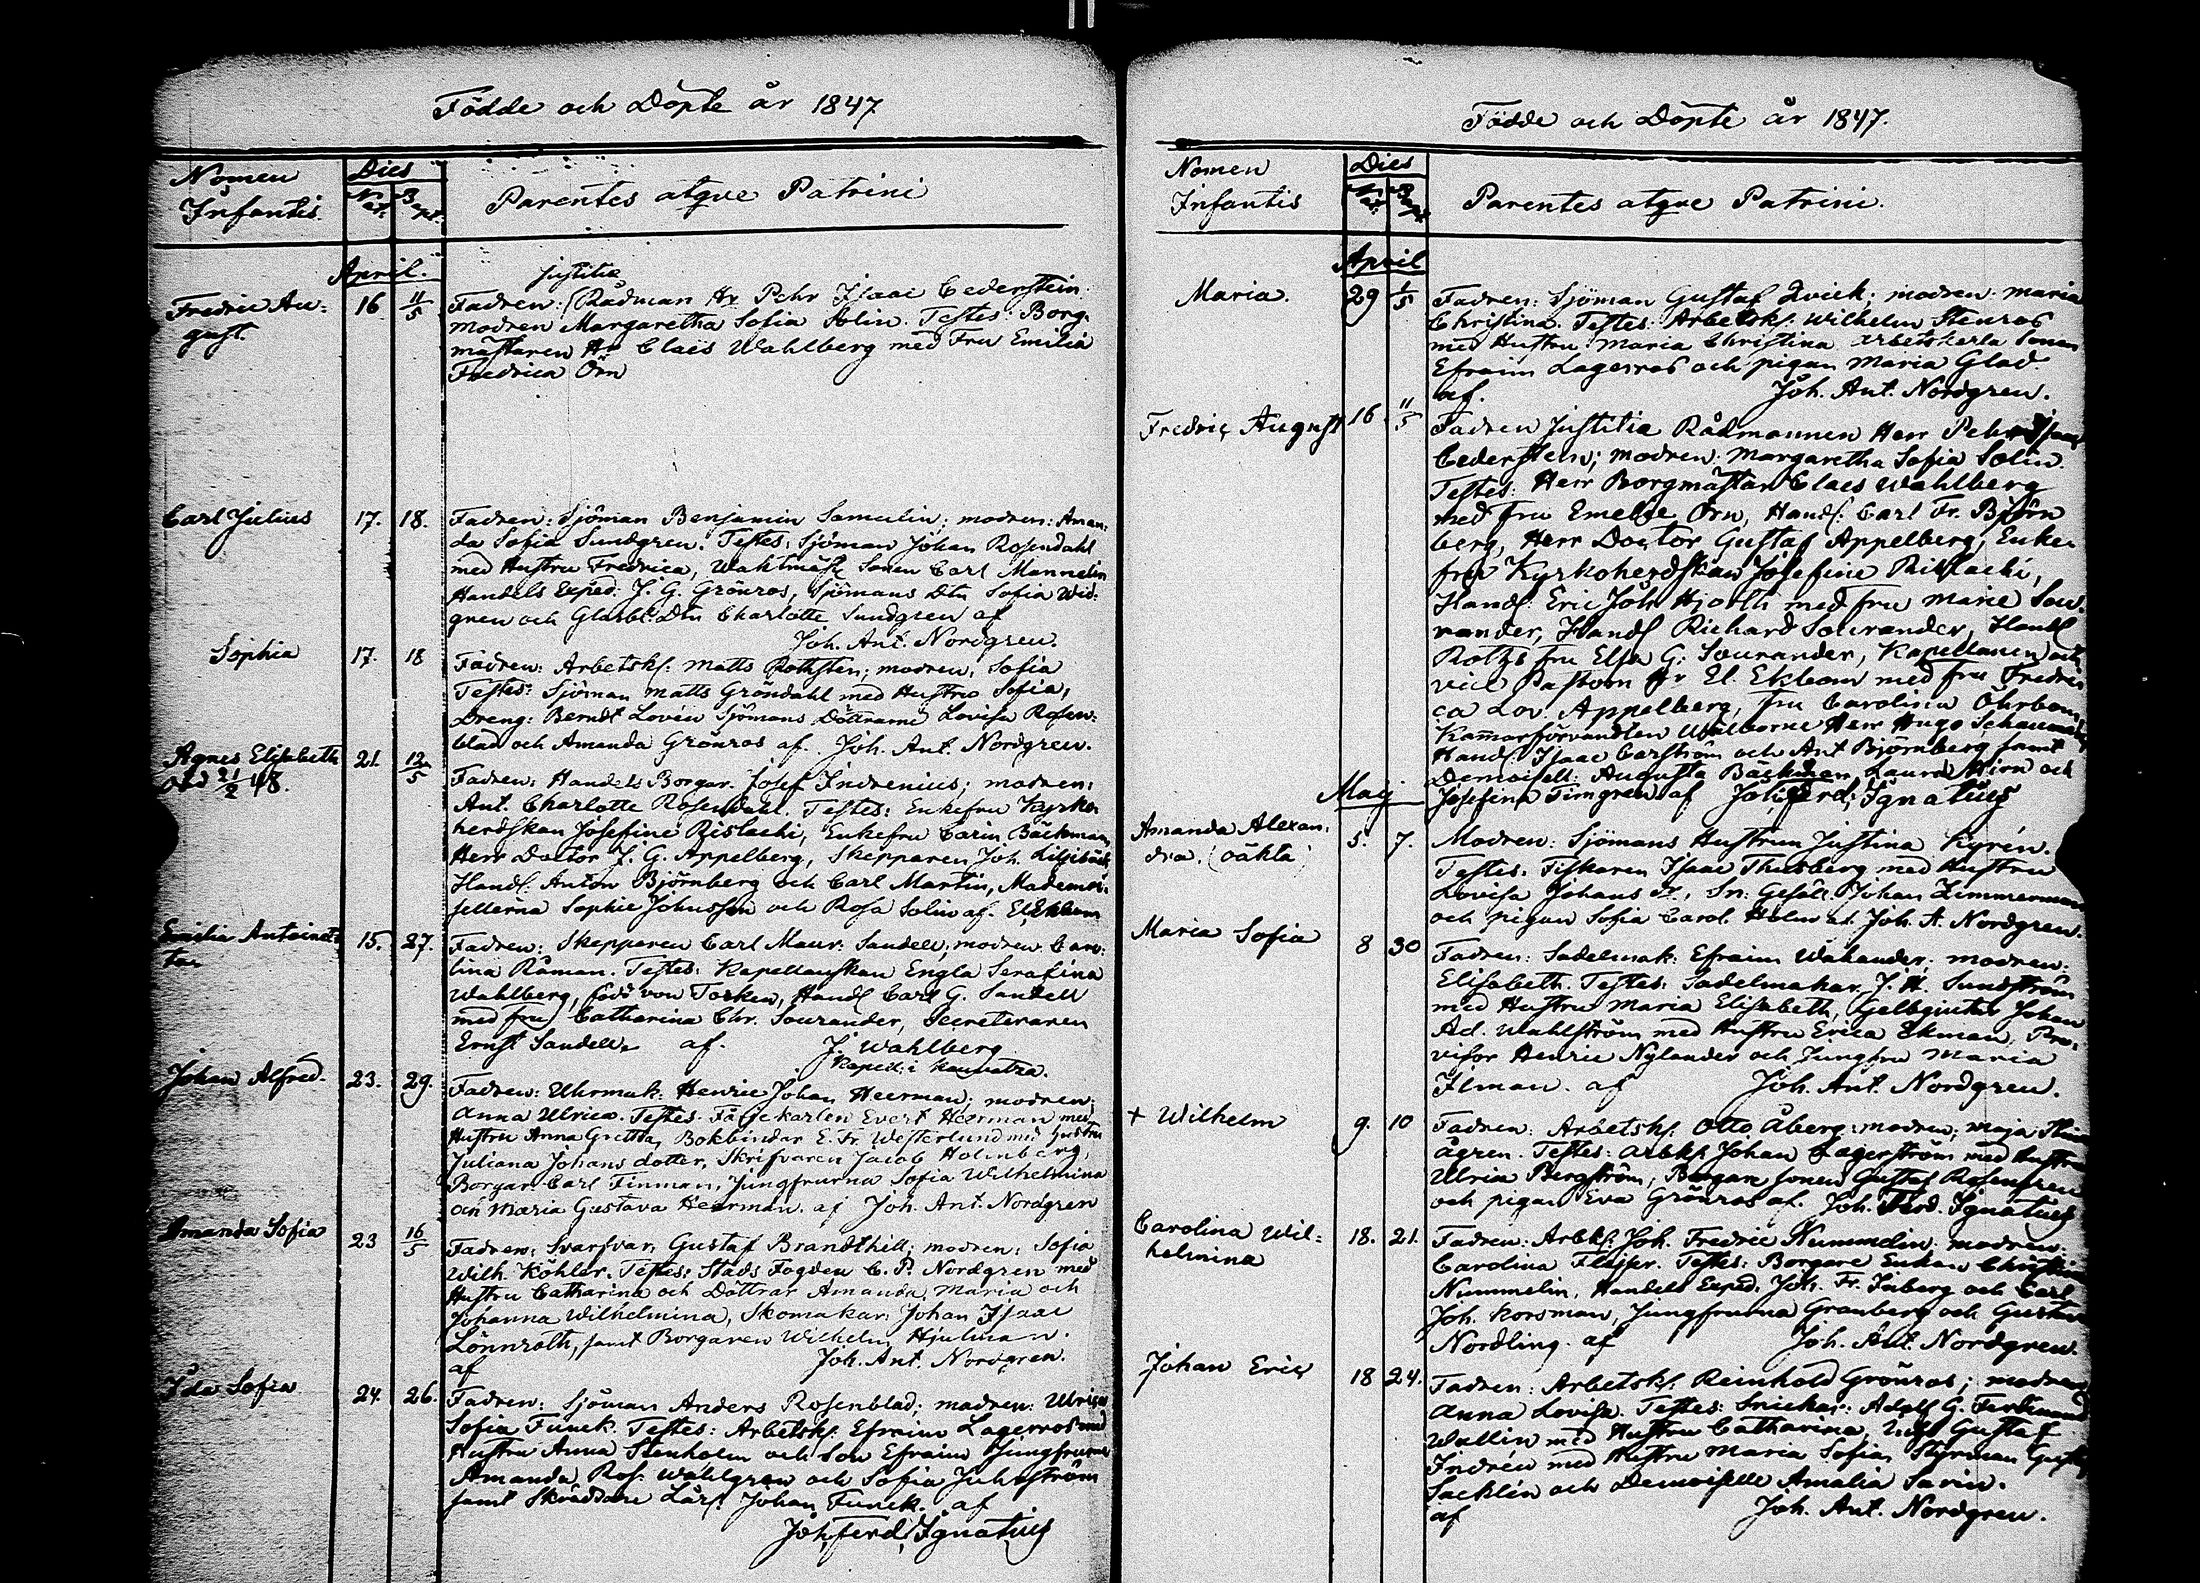 Födde och Döpte år 1847
Nomen Infantis
Dies
Nat. Bapt.
Parentes atqve Patrini
April.
justitie
Fredric Au- 16 11/5 Fadren: (Rådman Hr Pehr Isaac Cederstein
gust. modren Margaretha Sofia Solin. Testes: Borg-
mästaren Hr Claës Wahlberg med Fru Emilia
Fredrica Örn
Carl Julius 17. 18. Fadren: Sjöman Benjamin Samulin; modren: Aman-
da Sofia Sundgren. Testes: Sjöman Johan Rosendahl
med Hustru Fredrica, Waktmäst. Sonen Carl Mannelin
Handels Exped. J. G. Grönros, Sjömans Dtn Sofia Wid-
gren och Glasbl. Dtn Charlotte Sundgren af
Joh. Ant. Nordgren.
Sophia 17. 18 Fadren: Arbetsk. Matts Rothsten; modren, Sofia
Testes: Sjöman Matts Gröndahl med Hustru Sofia,
Dreng: Berndt Lovén Sjömans Döttrarne Lovisa Rosen-
blad och Amanda Grönros af. Joh. Ant. Nordgren.
Agnes Elisabeth 21. 12/5 Fadren: Handels Borgar. Josef Indrenius; modren:
död 21/2 48. Ant. Charlotte Rosendahl. Testes: Enkefru Kyrko-
herdskan Josefine Rislachi, Enkefru Carin Bäckman,
Herr Doctor J. G. Appelberg, Skepparen Joh. Liljebäck
Handl. Anton Björnberg och Carl Martin, Mademoi-
sellerna Sophie Johnsson och Rosa Solin af. El. Ekbom
Emilia Antoinet- 15. 27. Fadren: Skepparen Carl Maur. Sandell; modren Caro-
ta lina Råman. Testes: Kapellanskan Engla Serafina
Wahlberg, född von Torken, Handl Carl G. Sandell
med fru Catharina Chr. Sourander, Secreteraren
Ernst Sandell. af. J. Wahlberg
Kapell. i Kauvatsa.
Johan Alfred. 23. 29. Fadren: Uhrmak. Henric Johan Heerman; modren:
Anna Ulrica. Testes: Färjekarlen Evert Heerman med
Hustru Anna Gretta, Bokbindar E. Fr. Westerlund med hustru
Juliana Johans dotter, Skrifvaren Jacob Holmberg,
Borgar Carl Finman, Jungfrurna Sofia Wilhelmina
och Maria Gustava Heerman. af Joh. Ant. Nordgren
Amanda Sofia 23 16/5 Fadren: Svarfvar. Gustaf Brandthill; modren: Sofia
Wilh. Köhler. Testes: Stads Fogden C. P. Nordgren med
Hustru Catharina och Döttrar Amanda Maria och
Johanna Wilhelmina, Skomakar. Johan Isaac
Lönnroth, samt Borgaren Wilhelm Hjulman.
af Joh. Ant. Nordgren.
Ida Sofia 24. 26. Fadren: Sjöman Anders Rosenblad; modren: Ulrica
Sofia Funck. Testes: Arbetsk. Efraim Lagerros med
Hustru Anna Stenholm och Son Efraim Jungfrurne
Amanda Ros. Wahlgren och Sofia Juhlström
samt Skräddare Lärl. Johan Funck. af
Joh. Ferd. Ignatius
Födde och Döpte år 1847.
Nomen Infantis
Dies
Nat. Bapt.
Parentes atqve Patrini.
April
Maria. 29 1/5 Fadren: Sjöman Gustaf Qvick; modren Maria
Christina. Testes: Arbetsk. Wilhelm Stenros
med Hustru Maria Christina Arbetskarls Sonen
Efraim Lagerros och pigan Maria Glad.
af. Joh. Ant. Nordgren.
Fredric August 16 11/5 Fadren Justitia Rådmannen Herr Pehr Isaac
Cederstein; modren: Margaretha Sofia Solin.
Testes: Herr Borgmästar Claës Wahlberg
med fru Emelie Örn, Handl: Carl Fr. Björn
berg, Herr Doctor Gustaf Appelberg, Enke-
fru Kyrkoherdskan Josefine Rislachi,
Handl: Eric Joh. Hjorth med fru Marie Sou-
rander, Handl Richard Sourander, Handl
Roths fru Elsa G. Sourander, Kapellanen och
vice Pastorn Hr El. Ekbom med fru Fredri-
ca Lov. Appelberg, fru Carolina Öhrbom,
Kamarförvandten Wälborne Herr Hugo Schauman,
Handl Isaac Carlström och Ant Björnberg samt
Demoisell: Augusta Bäckman Laura Hirn och
Josefina Timgren af Joh. Ferd. Ignatius
May
Amanda Alexan- 5. 7. Modren: Sjömans Hustrun Justina Kyrén.
dra. (oäkta) Testes: Fiskaren Isaac Thusberg med Hustru
Lovisa Johans dr, Sn. Gesäll Johan Zimmerman
och pigan Sofia Carol. Holm af. Joh. A. Nordgren.
Maria Sofia 8 30 Fadren: Sadelmak: Efraim Wåhander; modren:
Elisabeth. Testes: Sadelmakar J. H. Sundström
med Hustru Maria Elisabeth, Gelbgjutar Johan
Ad. Wahlström med Hustru Erica Ekman, Pro-
visor Henric Nylander och Jungfru Maria
Ilman. af Joh. Ant. Nordgren.
+ Wilhelm 9. 10 Fadren: Arbetsk. Otto Åberg; modren; Maja Stina
Ågren. Testes: Arbk. Johan Lagerström med Hustru
Ulrica Bergström, Borgare Sonen Gustaf Rosengren
och pigan Eva Grönros af. Joh. Ferd. Ignatius
Carolina Wil- 18. 21. Fadren: Arbk. Joh. Fredric Nummelin; modren:
helmina Carolina Flaser. Testes: Borgare Enkan Christina
Nummelin, Handels Exped. Joh. Fr. Inberg och Carl
Joh. Korsman, Jungfrurna Granberg och Gustava
Nordling. af Joh. Ant. Nordgren.
Johan Eric 18 24. Fadren: Arbetsk. Reinhold Grönros; modren
Anna Lovisa. Testes: Snickar: Adolf G. Ferdinand
Wallin med Hustru Catharina, Gustaf
Indren med Hustru Maria Sofia, Styrman Gustaf
Sacklén och Demoiselle Amalia Savin.
af Joh. Ant. Nordgren.